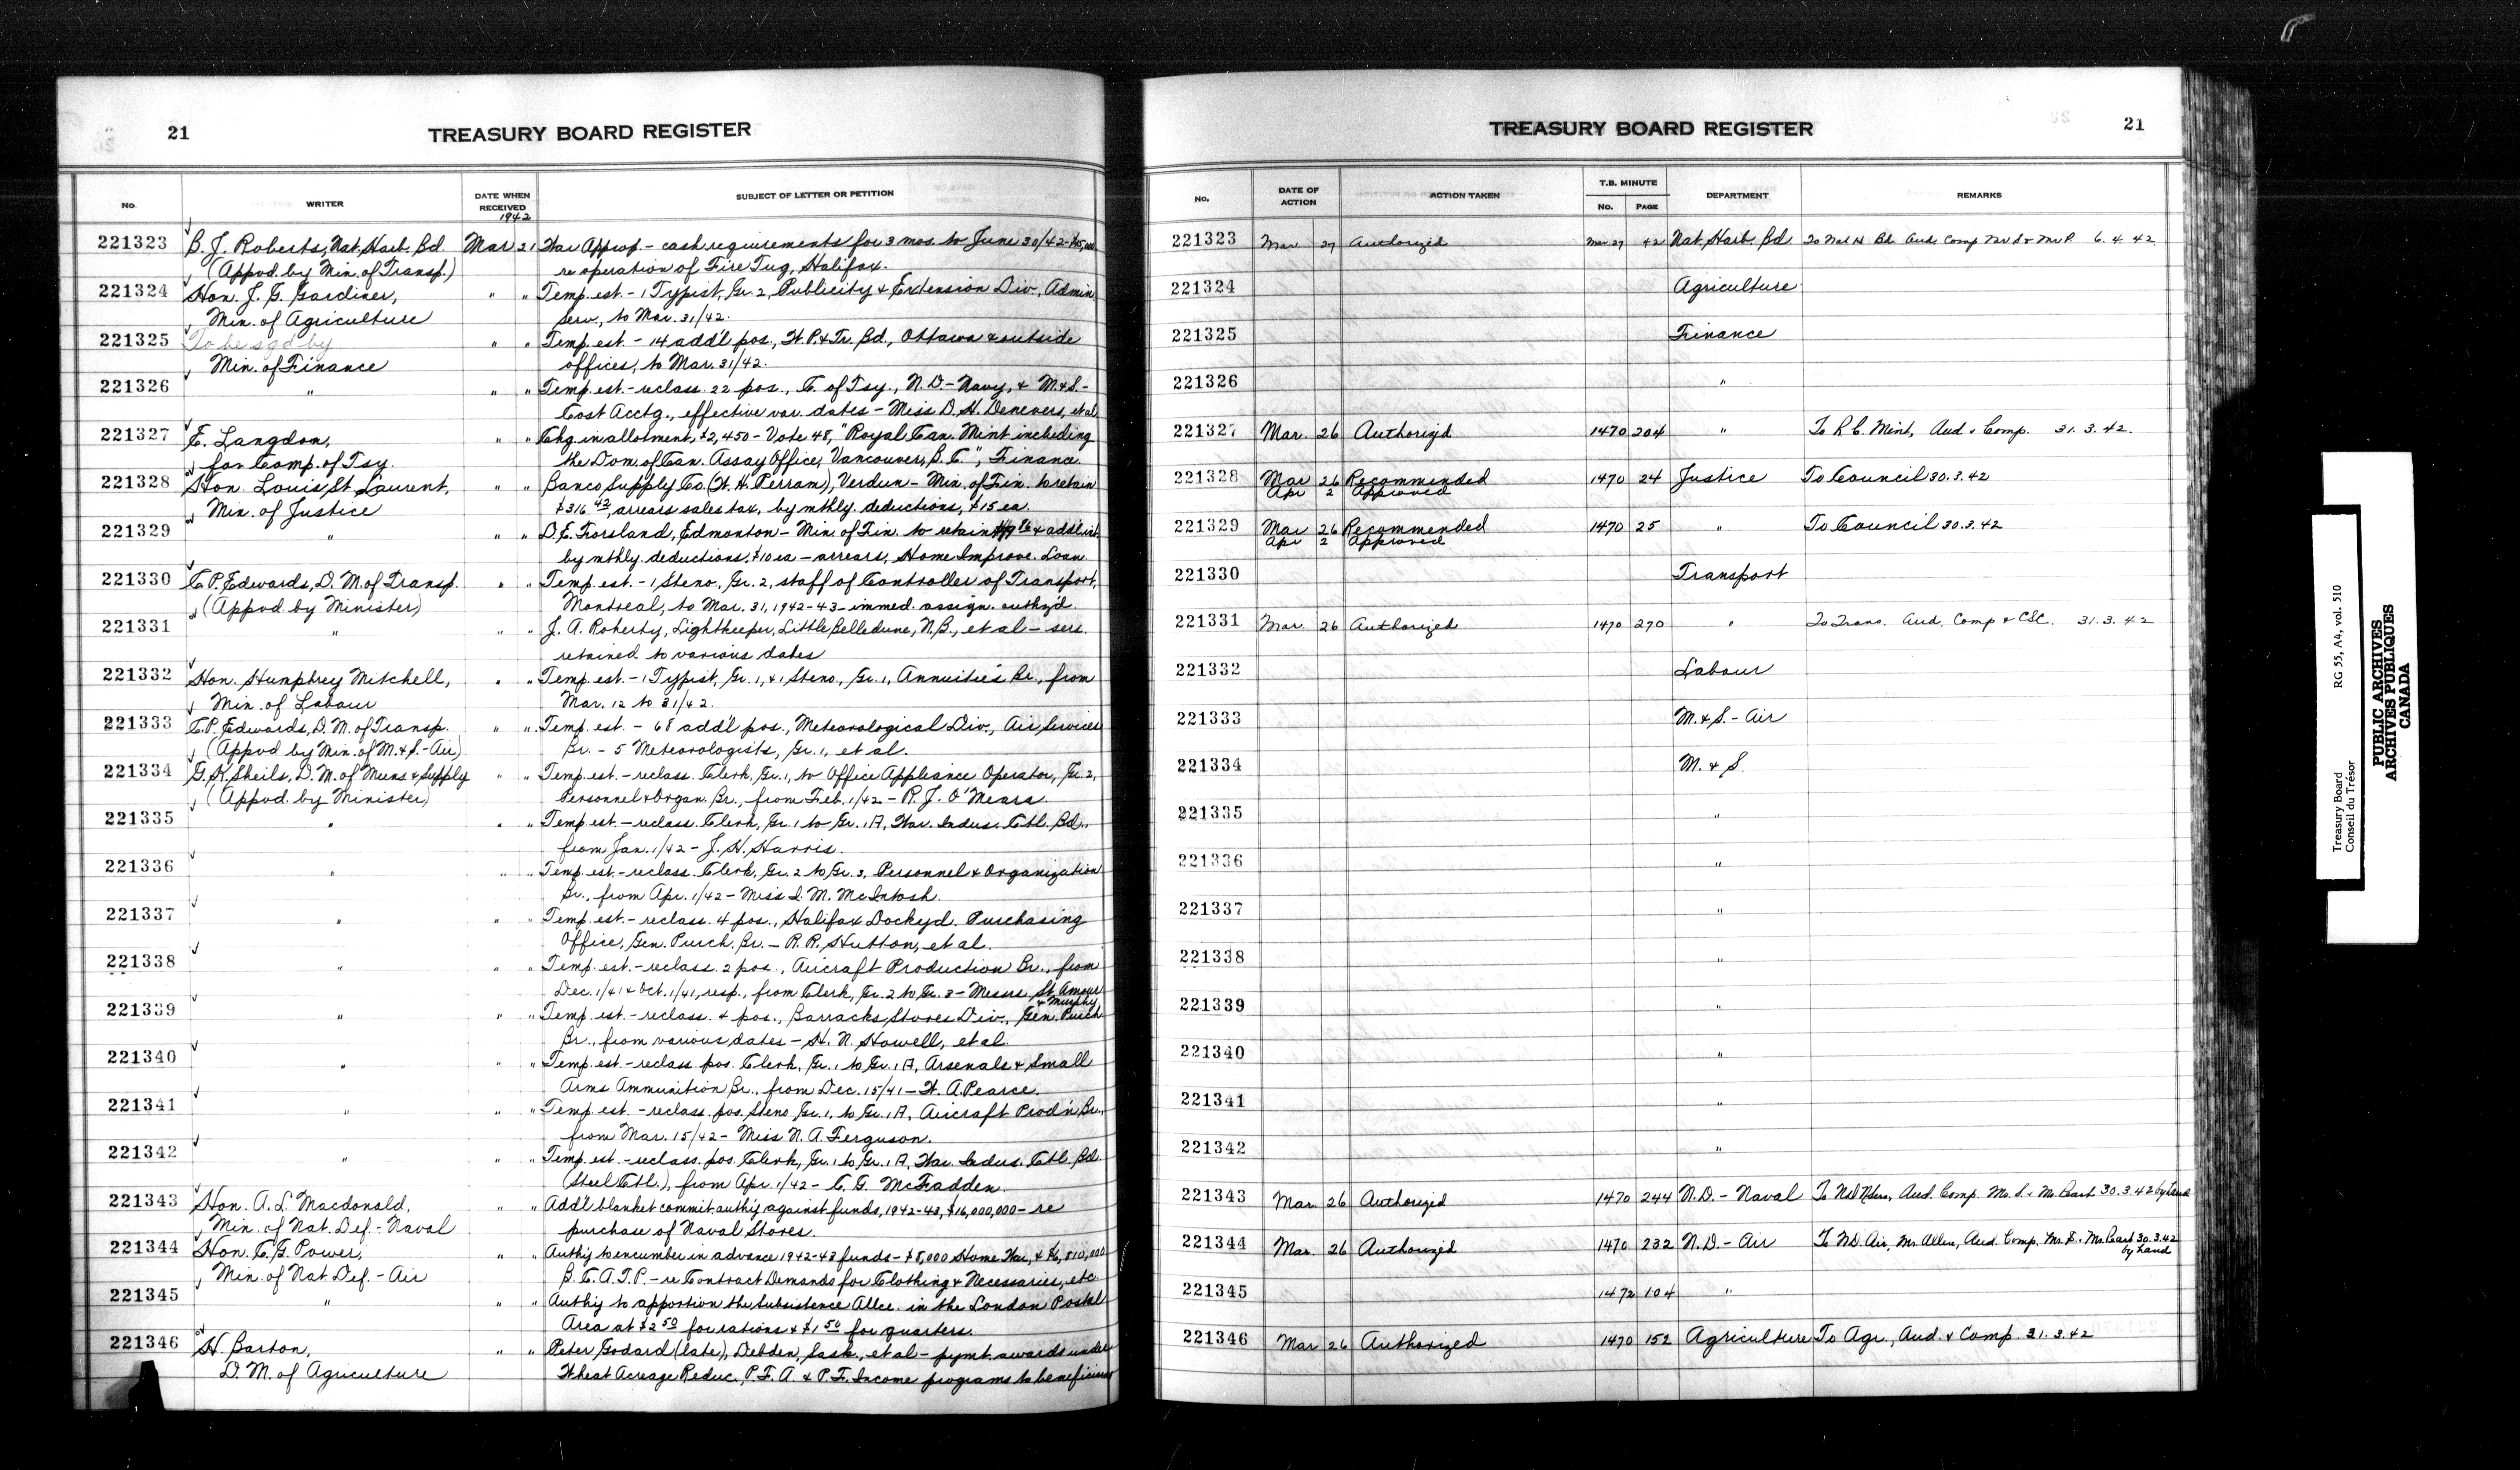 21
TREASURY BOARD REGISTER
No. WRITER DATE WHEN RECEIVED 1942 SUBJECT OF LETTER OR PETITION
221323 B. J. Roberts, Nat. Harb. Bd. Mar 21 War Approp. - cash requirements for 3 mos. to June 30/42 -
(Appvd. by Min. of Transp.) re operation of Fire Tug, Halifax.
221324 Hon. J. G. Gardiner, " " Temp. est. - 1 Typist, Gr. 2, Publicity & Extension Div., Admin.
Min. of Agriculture Serv., to Mar. 31/42.
221325 To be sgd by " " Temp. est. - 14 add'l pos., W.P. & Tr. Bd., Ottawa & outside
Min. of Finance offices, to Mar. 31/42.
221326 " " " Temp. est. - reclass. 22 pos., C. of Tsy., N.D. - Navy, & M. & S. -
Cost Acctg., effective var. dates - Miss D. H. Denevers, et al
221327 E. Langdon, " " Chg. in allotment, $2,450 - Vote 48, "Royal Can. Mint including
for Comp. of Tsy. the Dom. of Can. Assay Office, Vancouver, B.C.", Finance.
221328 Hon. Louis St. Laurent, " " Banco Supply Co. (W. H. Perram), Verdun - Min. of Fin. to retain
Min. of Justice $316 42, arrears sales tax, by mthly. deductions, $15 ea.
221329 " " " D. E. Forsland, Edmonton - Min. of Fin. to retain & add'l int.
by mthly. deductions, $10 ea - arrears, Home Improve. Loan
221330 C. P. Edwards, D. M. of Transp. " " Temp. est. - 1 Steno., Gr. 2, staff of Controller of Transport,
(Appvd. by Minister) Montreal, to Mar. 31, 1942-43 - immed. assign. authy'd.
221331 " " " J. A. Roherty, Lightkeeper, Little Belledune, N.B., et al - sers.
retained to various dates
221332 Hon. Humphrey Mitchell, " " Temp. est. - 1 Typist, Gr. 1, & 1 Steno., Gr. 1, Annuities Br., from
Min. of Labour Mar. 12 to 31/42.
221333 C. P. Edwards, D. M. of Transp. " " Temp. est. - 68 add'l pos., Meteorological Div., Air Services
(Appvd by Min. of M. & S. - Air) Br. - 5 Meteorologists, Gr. 1, et al.
221334 G. K. Sheils, D. M. of Muns & Supply " " Temp. est. - reclass. Clerk, Gr. 1, to Office Appliance Operator, Gr. 2,
(Appvd. by Minister) Personnel & Organ. Br., from Feb. 1/42 - R. J. O'Meara.
221335 " " " Temp. est. - reclass. Clerk, Gr. 1 to Gr. 1A, War. Indus. Ctl. Bd.,
from Jan. 1/42 - J. H. Harris.
221336 " " " Temp. est. - reclass. Clerk, Gr. 2 to Gr. 3, Personnel & Organization
Br., from Apr. 1/42 - Miss I. M. McIntosh.
221337 " " " Temp. est. - reclass. 4 pos., Halifax Dockyd. Purchasing
Office, Gen. Purch. Br. - R. R. Hutton, et al.
221338 " " " Temp. est. - reclass. 2 pos., Aircraft Production Br., from
Dec. 1/41 & Oct. 1/41, resp., from Clerk, Gr. 2 to Gr. 3 - Messrs. St. Amour & Murphy.
221339 " " " Temp. est. - reclass. 4 pos., Barracks Stores Div., Gen. Purch
Br., from various dates - H. N. Howell, et al
221340 " " " Temp. est. - reclass. pos. Clerk, Gr. 1 to Gr. 1A, Arsenals & Small
Arms Ammunition Br., from Dec. 15/41 - W. A. Pearce.
221341 " " " Temp. est. - reclass. pos. Steno. Gr. 1, to Gr. 1A, Aircraft Prod'n Br.,
from Mar. 15/42 - Miss N. A. Ferguson.
221342 " " " Temp. est. - reclass. pos. Clerk, Gr. 1 to Gr. 1A, War. Indus. Ctl. Bd.
(Steel Ctl.), from Apr. 1/42 - C. G. McFadden.
221343 Hon. A. L. Macdonald, " " Add'l blanket commit. auth'y against funds, 1942-43, $16,000,000 - re
Min. of Nat. Def. - Naval purchase of Naval Stores.
221344 Hon. C. G. Power, " " Auth'y to encumber in advance 1942-43 funds - $8,000 Home War, &
Min. of Nat Def. - Air B.C.A.T.P. - re Contract Demands for Clothing & Necessaries, etc.
221345 " " " Auth'y to apportion the Subsistence Allce. in the London Postal
Area at $2 50 for rations & $1 50 for quarters.
221346 H. Barton, " " Peter Godard (late), Debden, Sask., et al - pymt. awards under
D. M. of Agriculture Wheat Acreage Reduc., P.F.A. & P.F. Income programs to beneficiaries
TREASURY BOARD REGISTER
21
No. DATE OF ACTION ACTION TAKEN T.B. MINUTE No. PAGE DEPARTMENT REMARKS
221323 Mar 27 Authorized Mar 27 42 Nat. Harb. Bd. To Nat H Bd. Aud Comp Mr S & Mr P. 6.4.42.
221324 Agriculture
221325 Finance
221326 "
221327 Mar. 26 Authorized 1470 204 " To R. C. Mint, Aud & Comp. 31.3.42.
221328 Mar 26 Recommended 1470 24 Justice To Council 30.3.42
Apr 2 Approved
221329 Mar 26 Recommended 1470 25 " To Council 30.3.42
Apr 2 Approved
221330 Transport
221331 Mar. 26 Authorized 1470 270 " To Trans. Aud. Comp & CSC. 31.3.42
221332 Labour
221333 M. & S. - Air
221334 M. & S.
221335 "
221336 "
221337 "
221338 "
221339 "
221340 "
221341 "
221342 "
221343 Mar. 26 Authorized 1470 244 N.D. - Naval Aud. Comp. Mr. S. 30.3.42 by hand
221344 Mar. 26 Authorized 1470 232 N.D. - Air To N.D. Air, Mr Allen, Aud. Comp. Mr. S. 30.3.42
by hand
221345 1472 104 "
221346 Mar 26 Authorized 1470 152 Agriculture To Agr., Aud. & Comp. 31.3.42
Treasury Board RG 55, A4, vol. 510
Conseil du Trésor
PUBLIC ARCHIVES
ARCHIVES PUBLIQUES
CANADA